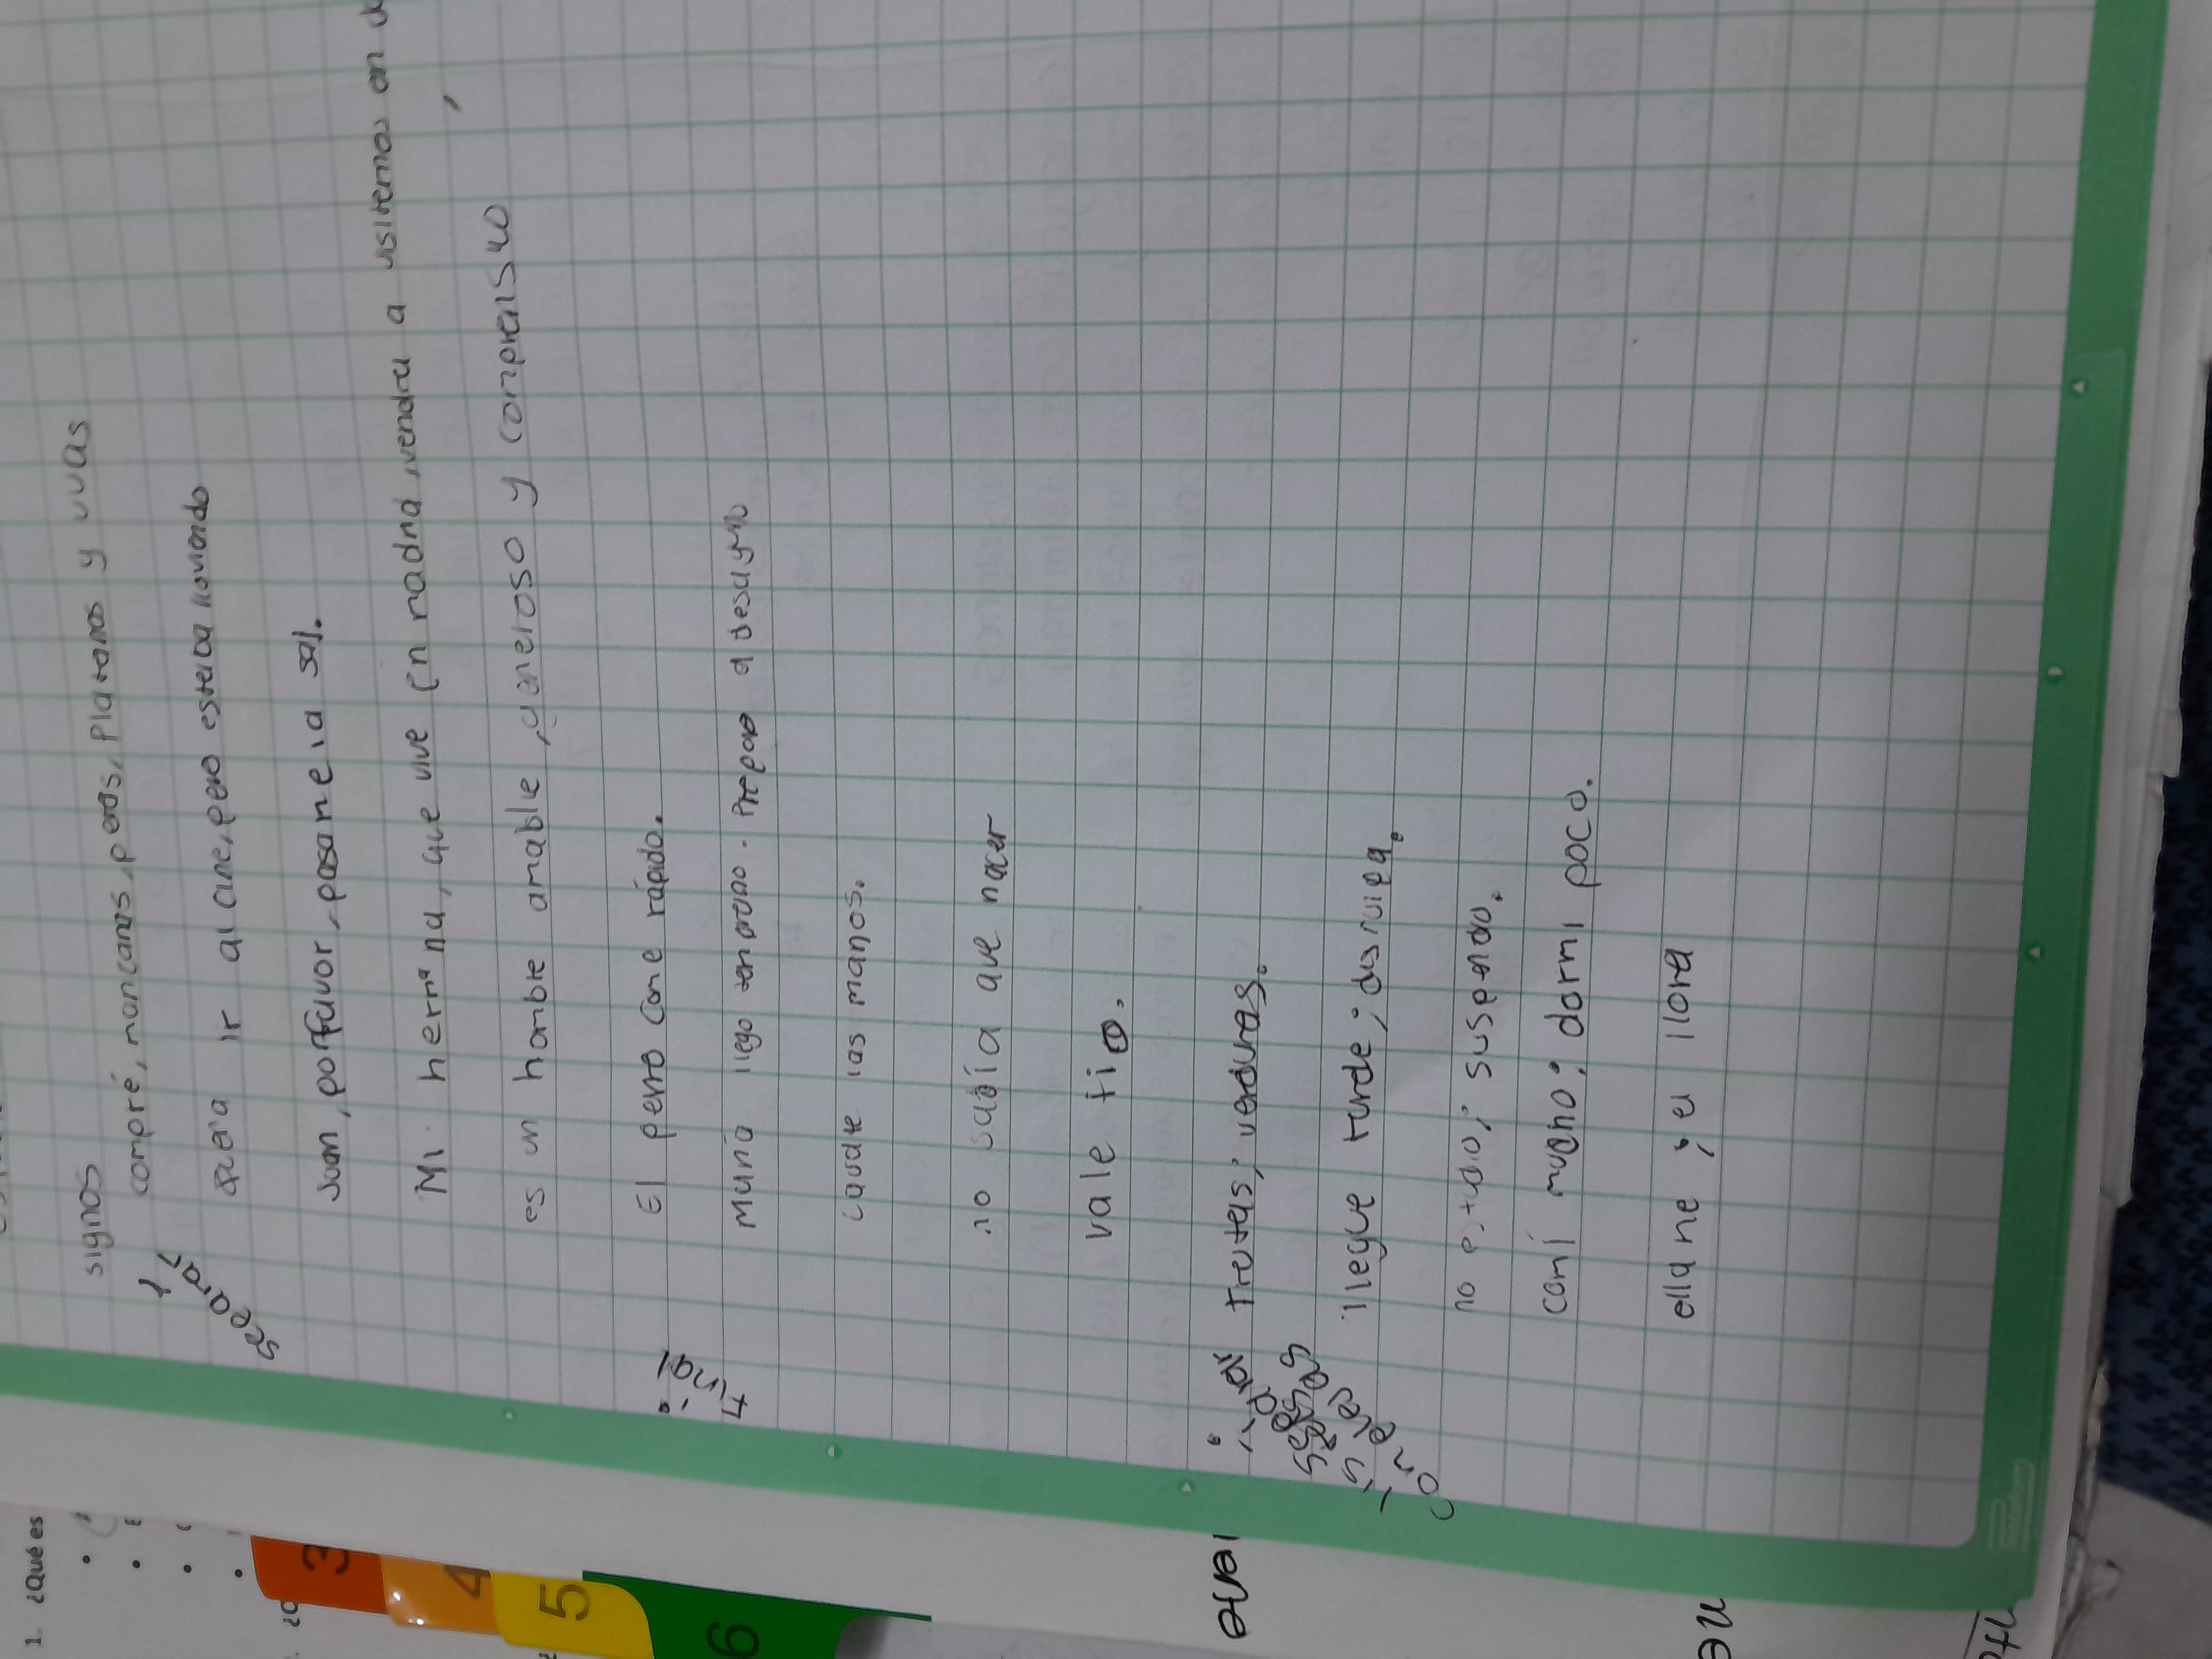 signos
compré, mancanas, peras, Platanos y uvas
ir al cine, pero estaba lloviendo
Juan, porfavor, pasame la sal.
Mi hermana, que vive En madrid, vendra a visitemos en
es un hombre amable, generoso y comprensivo
El perro come rápido.
Maria llego temprano. Preparo el desayuno
Lavate las manos.
no sabía que hacer
vale tio.
frutas; verduras.
llegue tarde; disculpa.
no estudio; suspendo.
comí mucho; dormi poco.
ella rie ; el llora
separar
final
3
4
5
6
1. ¿Qué es